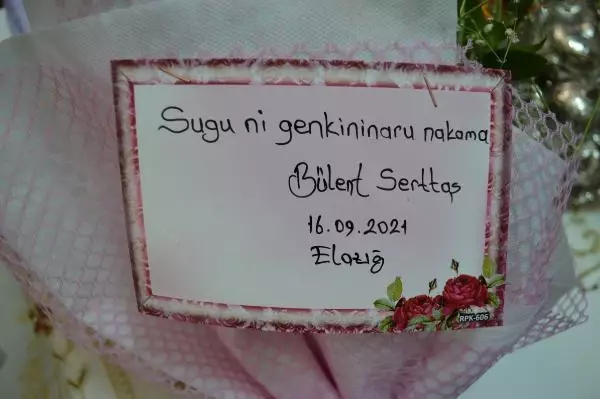 Sugu ni genkininaru nakama
Bülent Serttaş
16.09.2021
Elazığ
RPK-606